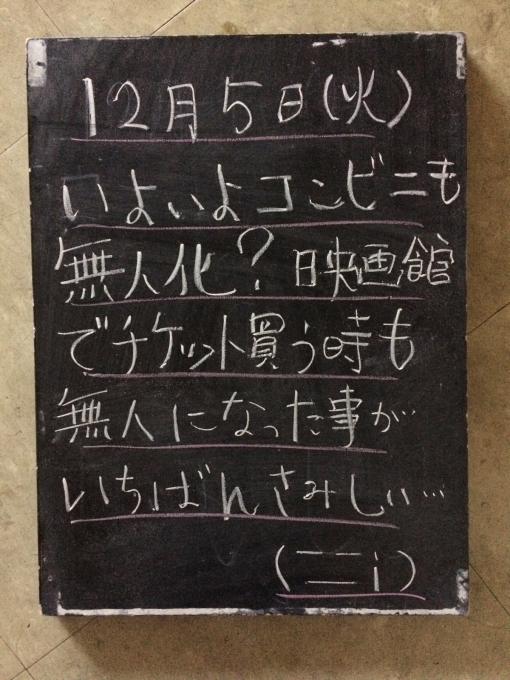 12月5日(火)
いよいよコンビニも
無人化?映画館
でチケット買う時も
無人になった事が
いちばんさみしい…
(二二i)